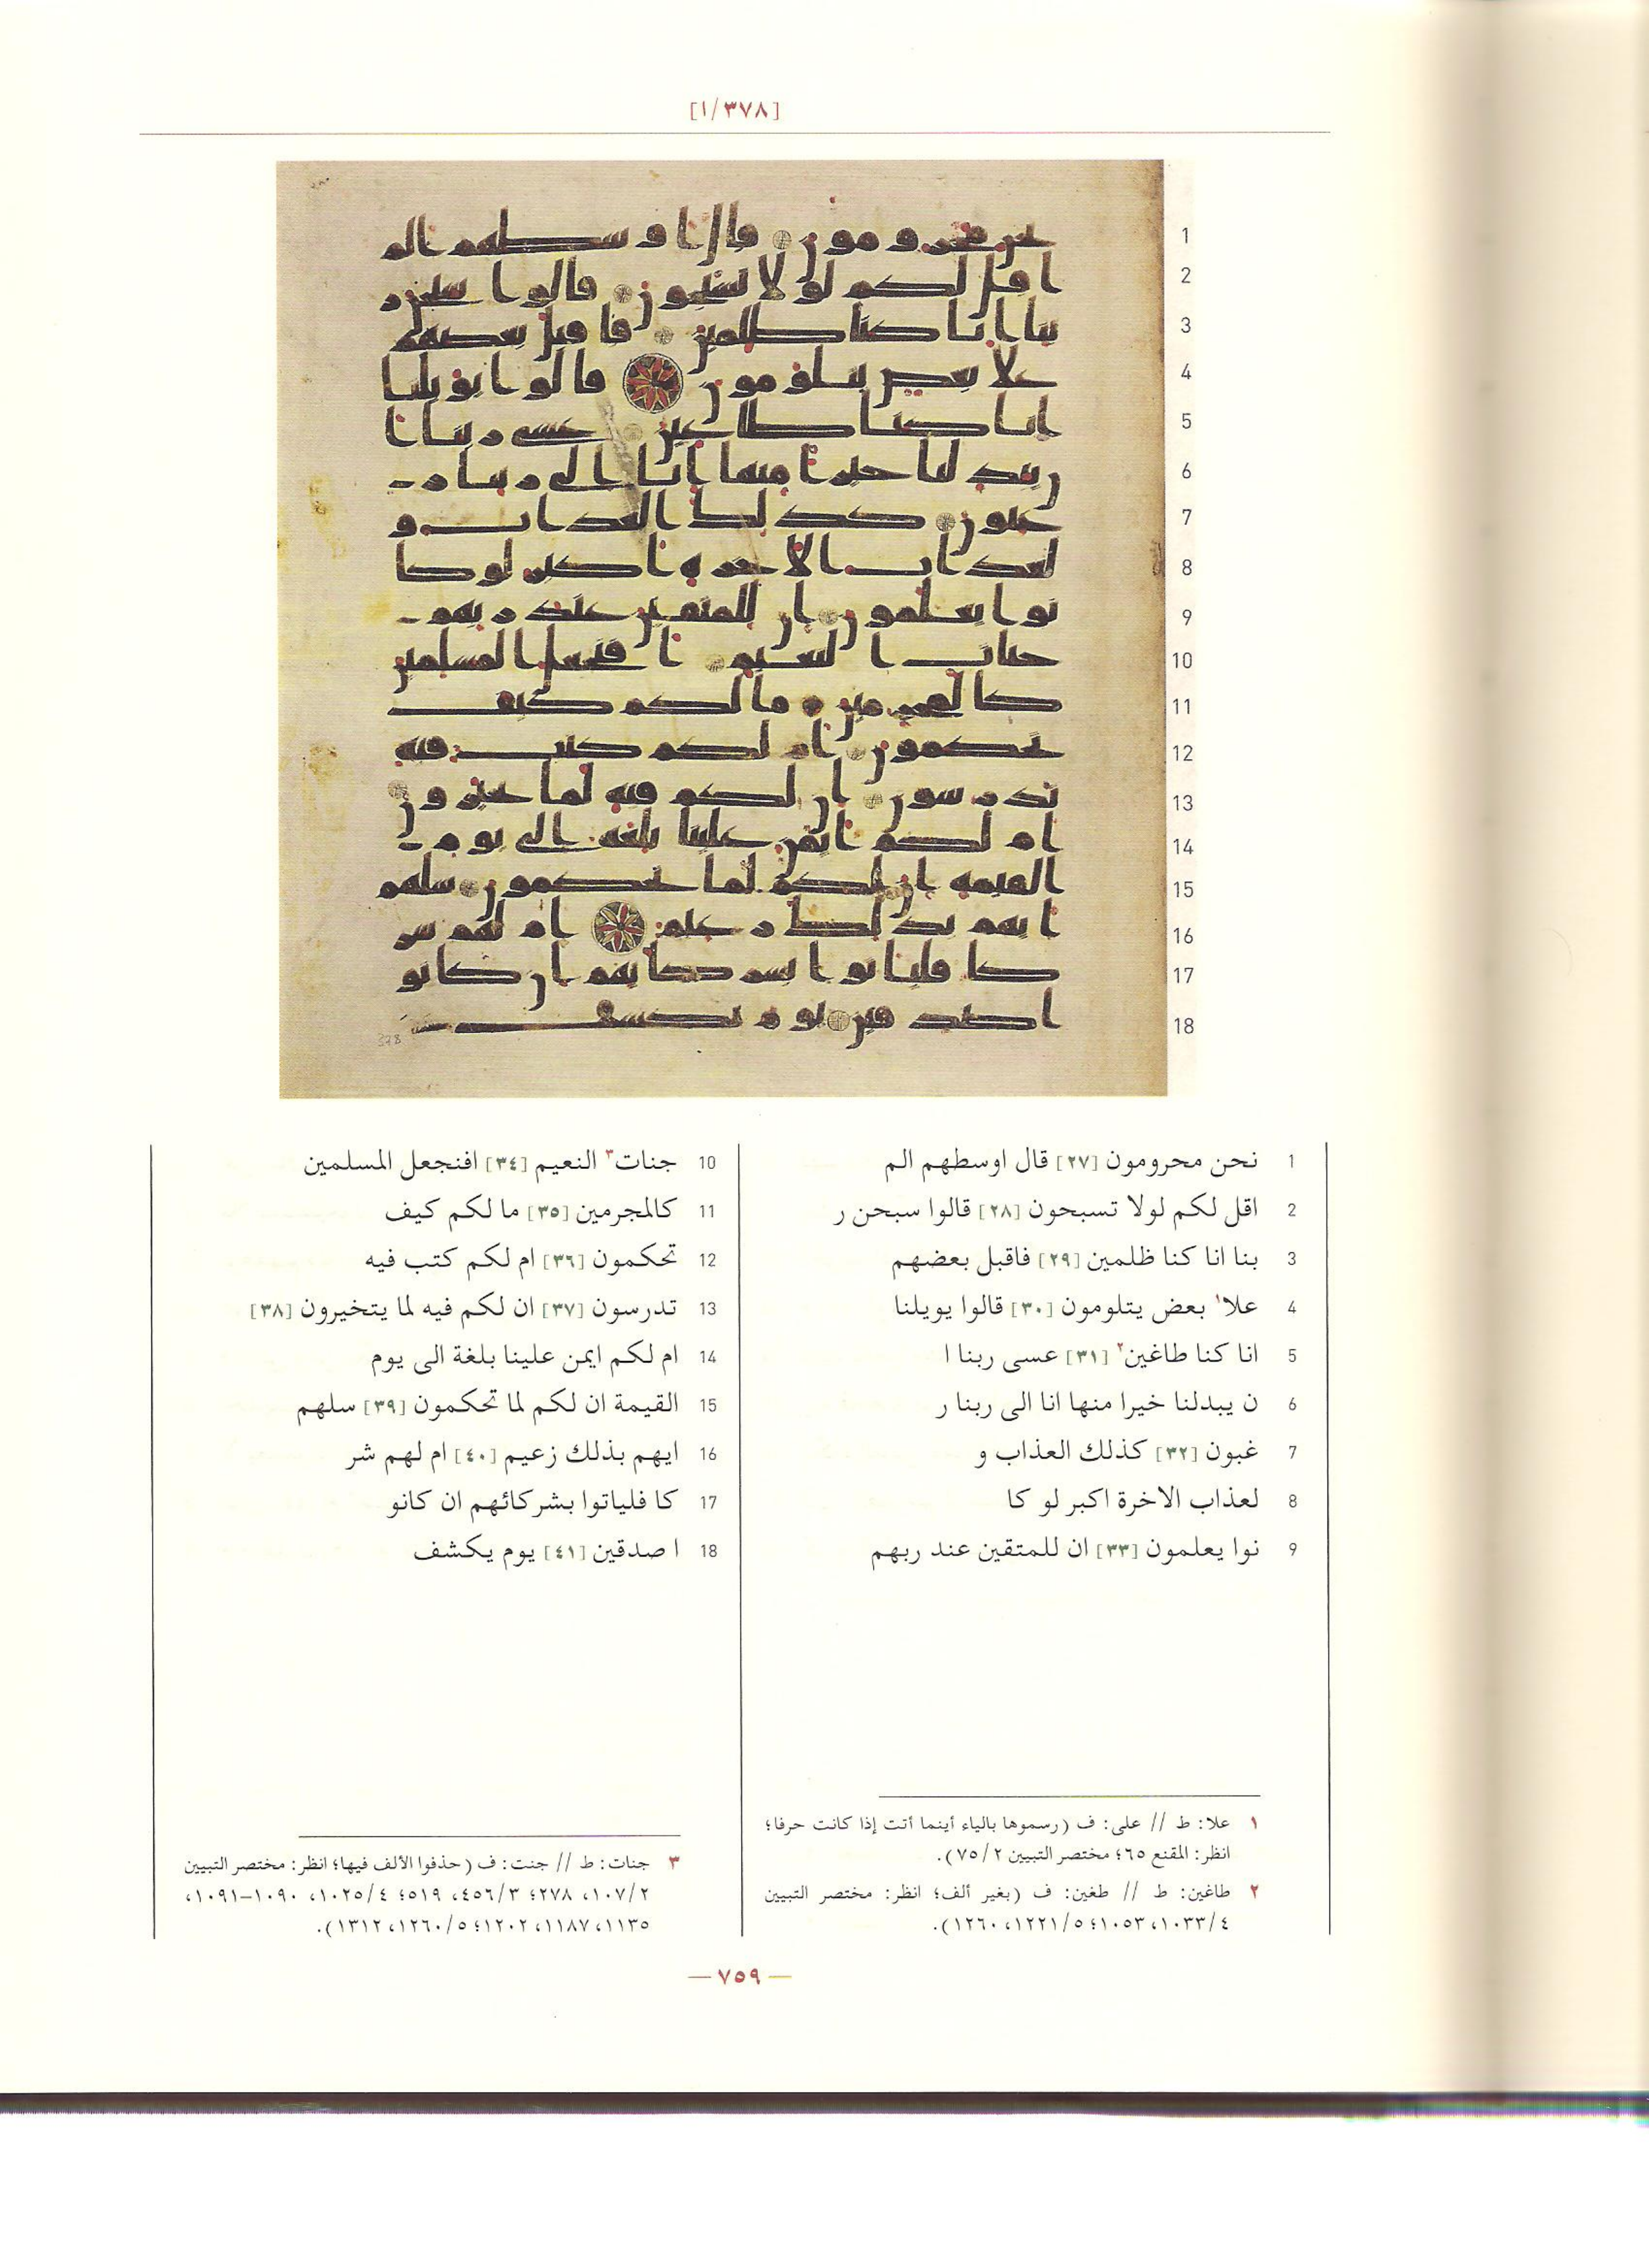 [١/٣٧٨]
1 نحن محرومون [٢٧] قال اوسطهم الم
2 اقل لكم لولا تسبحون [٢٨] قالوا سبحن ر
3 بنا انا كنا ظلمين [٢٩] فاقبل بعضهم
4 علا١ بعض يتلومون [٣٠] قالوا يويلنا
5 انا كنا طاغين٢ [٣١] عسى ربنا ا
6 ن يبدلنا خيرا منها انا الى ربنا ر
7 غبون [٣٢] كذلك العذاب و
8 لعذاب الاخرة اكبر لو كا
9 نوا يعلمون [٣٣] ان للمتقين عند ربهم
10 جنات٣ النعيم [٣٤] افنجعل المسلمين
11 كالمجرمين [٣٥] ما لكم كيف
12 تحكمون [٣٦] ام لكم كتب فيه
13 تدرسون [٣٧] ان لكم فيه لما يتخيرون [٣٨]
14 ام لكم ايمن علينا بلغة الى يوم
15 القيمة ان لكم لما تحكمون [٣٩] سلهم
16 ايهم بذلك زعيم [٤٠] ام لهم شر
17 كا فلياتوا بشركائهم ان كانو
18 ا صدقين [٤١] يوم يكشف
١ علا: ط // على: ف (رسموها بالياء أينما أتت إذا كانت حرفا؛
انظر: المقنع ٦٥؛ مختصر التبيين ٧٥/٢).
٢ طاغين: ط // طغين: ف (بغير ألف؛ انظر: مختصر التبيين
١٠٣٣/٤، ١٠٥٣؛ ١٢٢١/٥، ١٢٦٠).
٣ جنات: ط // جنت: ف (حذفوا الألف فيها؛ انظر: مختصر التبيين
١٠٧/٢، ٢٧٨؛ ٤٥٦/٣، ٥١٩؛ ١٠٢٥/٤، ١٠٩٠–١٠٩١،
١١٣٥، ١١٨٧، ١٢٠٢؛ ١٢٦٠/٥، ١٣١٢).
— ٧٥٩ —